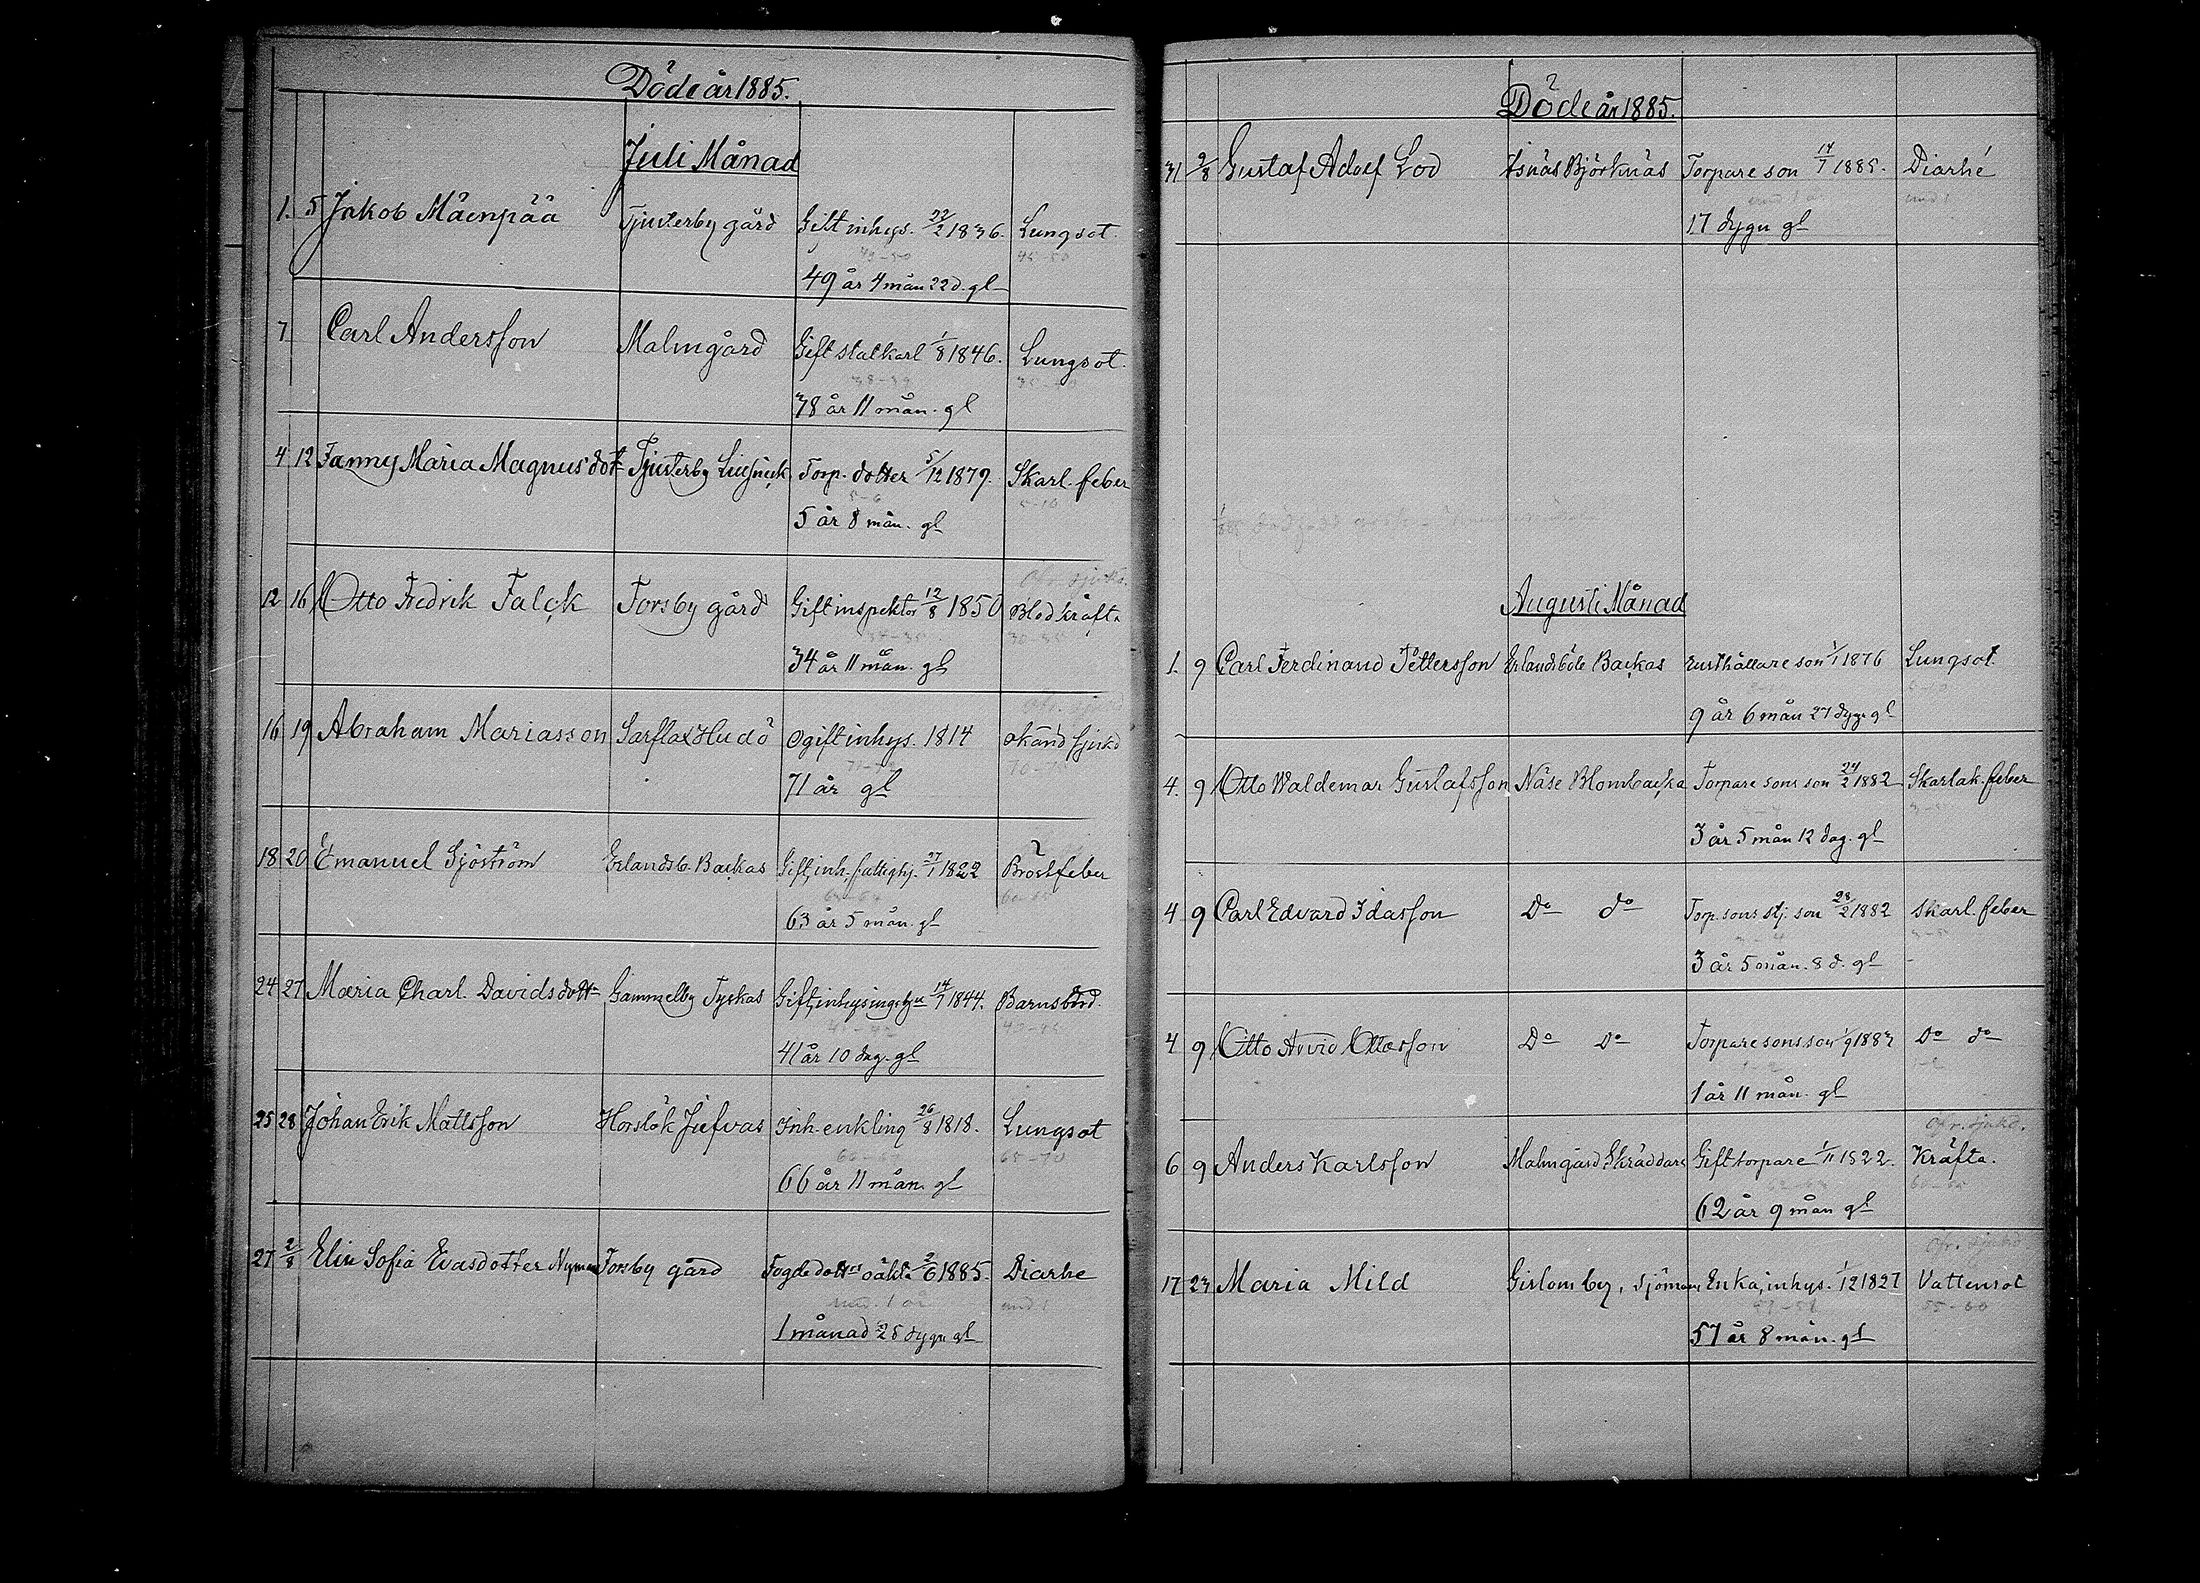 Döde år 1885.
Juli Månad
1. 5 Jakob Mäenpää Tjusterby gård Gift inhys. 22/2 1836. Lungsot.
49-50 45-50
49 år 4 mån 22 d. gl
7 Carl Andersson Malmgård Gift statkarl 1/8 1846. Lungsot.
38-39
38 år 11 mån. gl
4 12 Fanny Maria Magnusdotr Tjusterby Torp. dotter 5/12 1879. Skarl. feber
5-6 5-10
5 år 8 mån. gl
12 16 Otto Fredrik Falck Forsby gård Gift inspektor 12/8 1850 Blodkräfta
34-35 30-35
34 år 11 mån. gl
16 19 Abraham Mariasson Sarflax Hudö Ogift inhys. 1814 okänd sjukd
71 år gl
18 20 Emanuel Sjöström Erlandsb. Backas Gift, inh. fattighj. 27/1 1822 Bröstfeber
63 år 5 mån. gl
24 27 Maria Charl. Davidsdottr Gammelby Tyskas Gift, 14/7 1844. Barnsbörd.
41 år 10 dag. gl
25 28 Johan Erik Mattsson Horslök Jiefvas Inh. enkling 26/8 1818. Lungsot
65-70
66 år 11 mån. gl
27 2/8 Elin Sofia Evasdotter Nyman Forsby gård Fogde dotter oäkta 2/6 1885. Diarhe
und. 1 år und 1
1 månad 25 dygn gl
Döde år 1885.
31 2/8 Gustaf Adolf Lod Isnäs Björknäs Torpare son 14/7 1885. Diarhé
und 1 år und 1
17 dygn gl
Augusti Månad
1. 9 Carl Ferdinand Pettersson Erlandsböle Backas Rusthållare son 1/1 1876 Lungsot.
9 år 6 mån 27 dygn gl
4. 9 Otto Waldemar Gustafsson Näse Blombacka Torpare sons son 24/2 1882 Skarlak. feber
3 år 5 mån 12 dag. gl
4 9 Carl Edvard Idasson Do do Torp. sons stj. son 28/2 1882 Skarl. feber
3 år 5 mån. 8 d. gl
4 9 Otto Arvid Ottosson Do Do Torpare sons son 1/9 1883 Do do
1 år 11 mån. gl
ofr. sjukd.
6 9 Anders Karlsson Malmgård Skräddars Gift torpare 1/11 1822. Kräfta.
62 år 9 mån gl
ofr. sjukd
17 23 Maria Mild Gislomby, Sjömans Enka, inhys. 1/12 1827 Vattensot
55-60
57 år 8 mån. gl